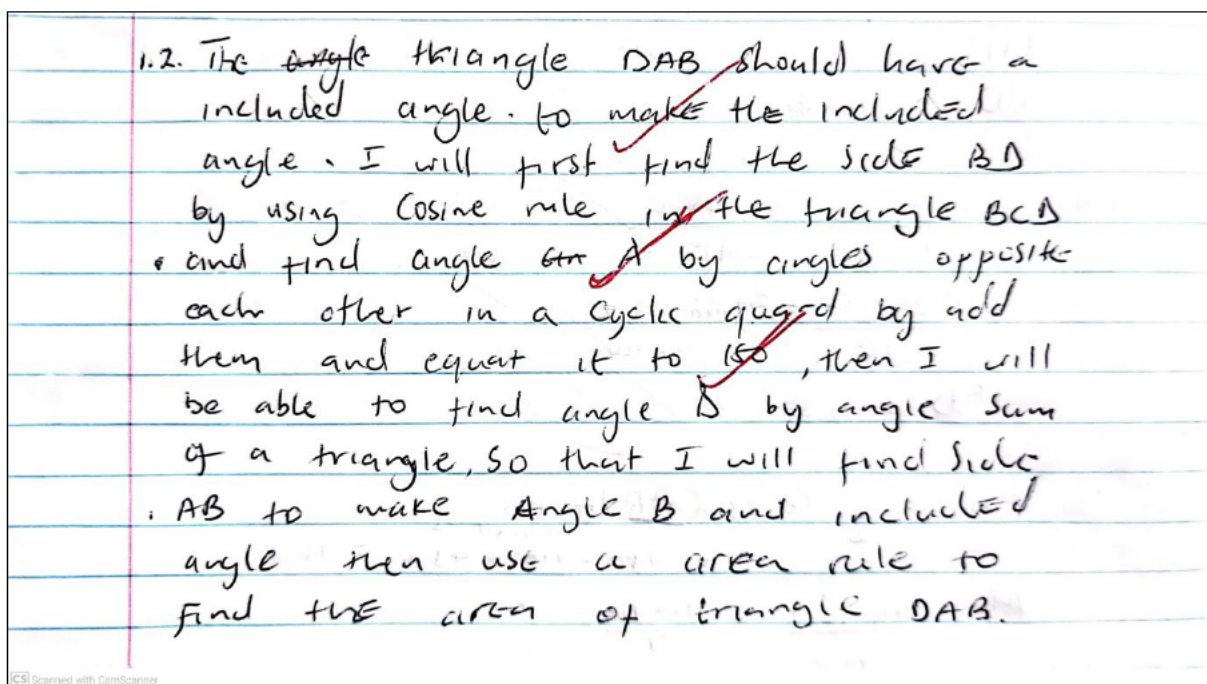 1.2. The angle triangle DAB should have a
included angle. to make the included
angle. I will first find the side BD
by using Cosine rule in the triangle BCD
and find angle A by angles opposite
each other in a cyclic quard by add
them and equat it to 180, then I will
be able to find angle D by angle sum
of a triangle, so that I will find side
AB to make Angle B and included
angle then use a area rule to
find the area of triangle DAB.
CS Scanned with CamScanner